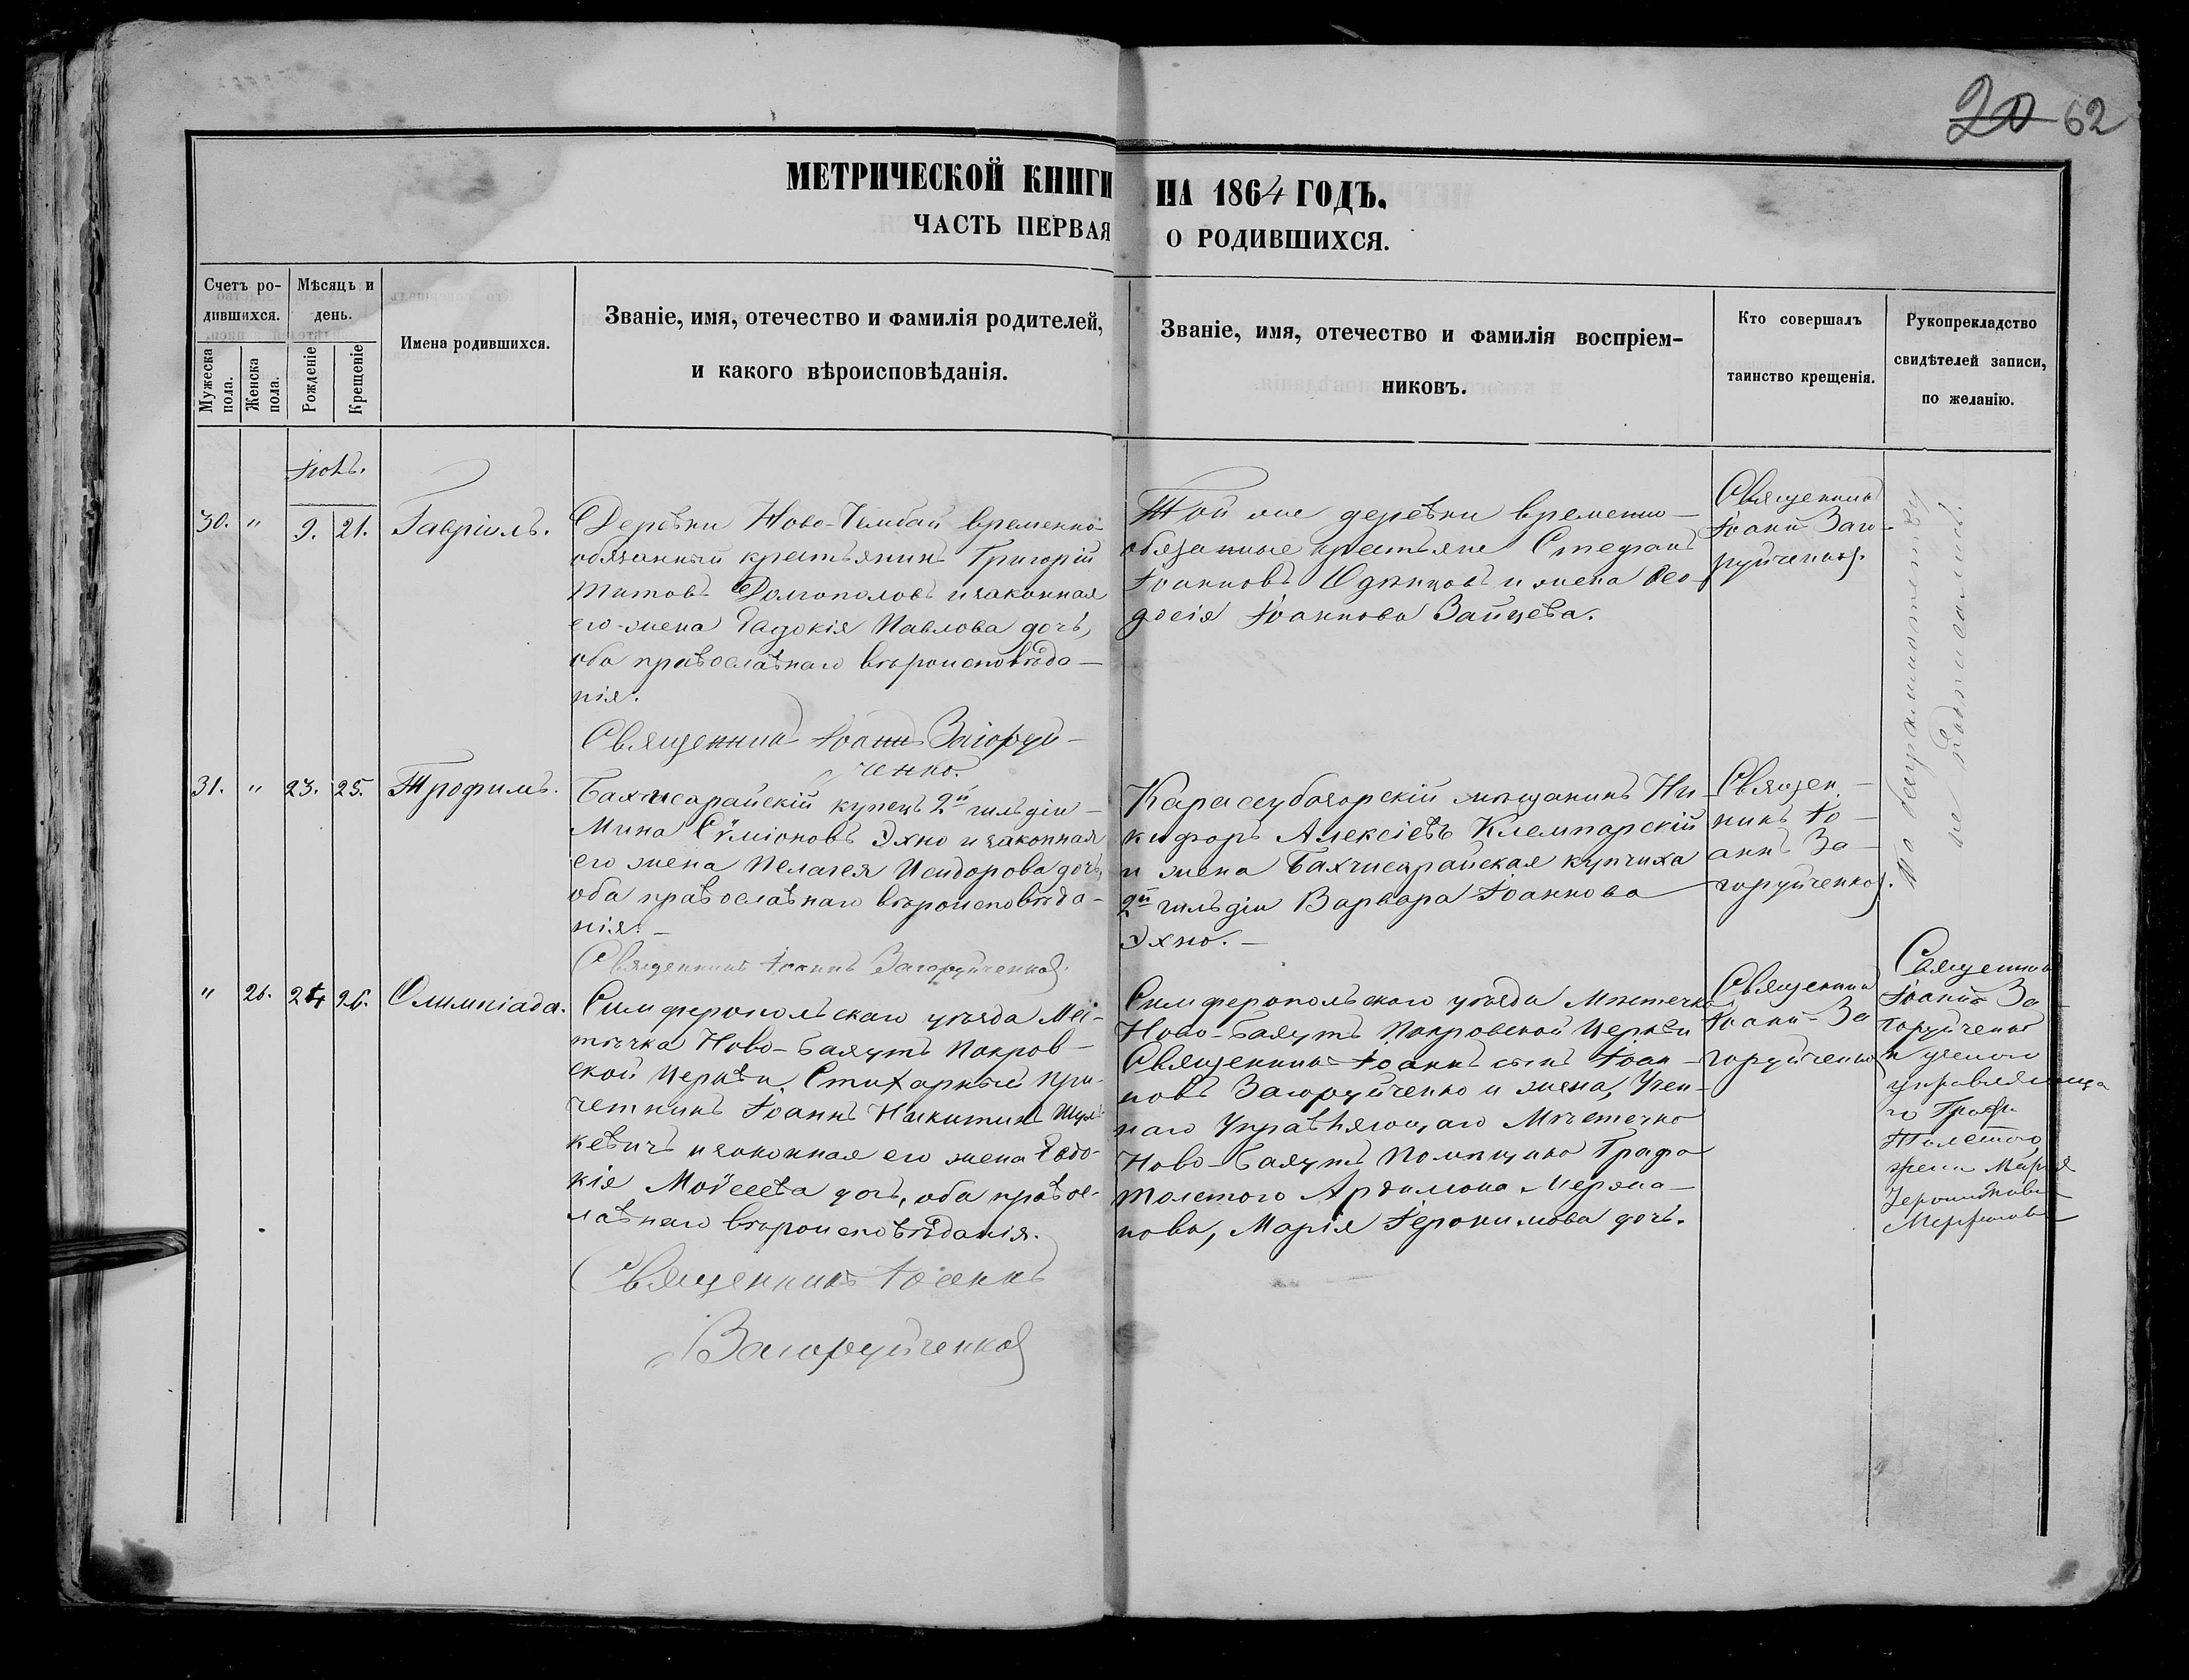 20 62
МЕТРИЧЕСКОЙ КНИГИ НА 1864 ГОДЪ.
ЧАСТЬ ПЕРВАЯ О РОДИВШИХСЯ.
Счетъ ро-
дившихся.
Мужеска
пола.
Женска
пола.
Мѣсяцъ и
день.
Рожденіе
Крещеніе
Имена родившихся.
Званіе, имя, отечество и фамилія родителей,
и какого вѣроисповѣданія.
Званіе, имя, отечество и фамилія воспріем-
никовъ.
Кто совершалъ
таинство крещенія.
Рукоприкладство
свидѣтелей записи,
по желанію.
30. " 9. 21. Гавріилъ.
Деревни Ново- временно-
обязанный крестьянинъ Григорій
Титовъ Долгополовъ и законная
его жена Евдокія Павлова дочь,
оба православнаго вѣроисповѣда-
нія.
Священникъ Іоаннъ Загоруй-
ченко.
Той же деревни временно-
обязанные крестьяне Стефанъ
Іоанновъ и жена Ѳео-
досія Іоаннова Зайцева.
Священникъ
Іоаннъ Заго-
руйченко.
По неграмотству
не подписались.
31. " 23. 25. Трофимъ.
Бахчисарайскій купецъ 2й гильдіи
Мина Сѵміоновъ Эхно и законная
его жена Пелагея Исидорова дочь,
оба православнаго вѣроисповѣда-
нія. —
Священникъ Іоаннъ Загоруйченко.
Карасубазарскій мѣщанинъ Ни-
кифоръ Алексіевъ
и жена Бахчисарайская купчиха
2й гильдіи Варвара Іоаннова
Эхно. —
Священ-
никъ Іо-
аннъ За-
горуйченко.
" 26. 24 26. Олимпіада.
Симферопольскаго уѣзда Мѣ-
стечка Ново- Покров-
ской Церкви, Стихарный при-
четникъ Іоаннъ Никитинъ
кевичъ и законная его жена Евдо-
кія Моѵсеева дочь, оба правос-
лавнаго вѣроисповѣданія.
Священникъ Іоаннъ
Загоруйченко
Симферопольскаго уѣзда Мѣстечка
Ново- Покровской Церкви
Священникъ Іоаннъ сынъ Іоан-
новъ Загоруйченко и жена,
наго Управляющаго Мѣстечка
Ново- Помѣщика Графа
Толстого
нова, Марія Іеронимова дочь.
Священникъ
Іоаннъ За
горуйченко
Священникъ
Іоаннъ За
горуйченко
и
управляюща
го Графа
Толстого
жена Марія